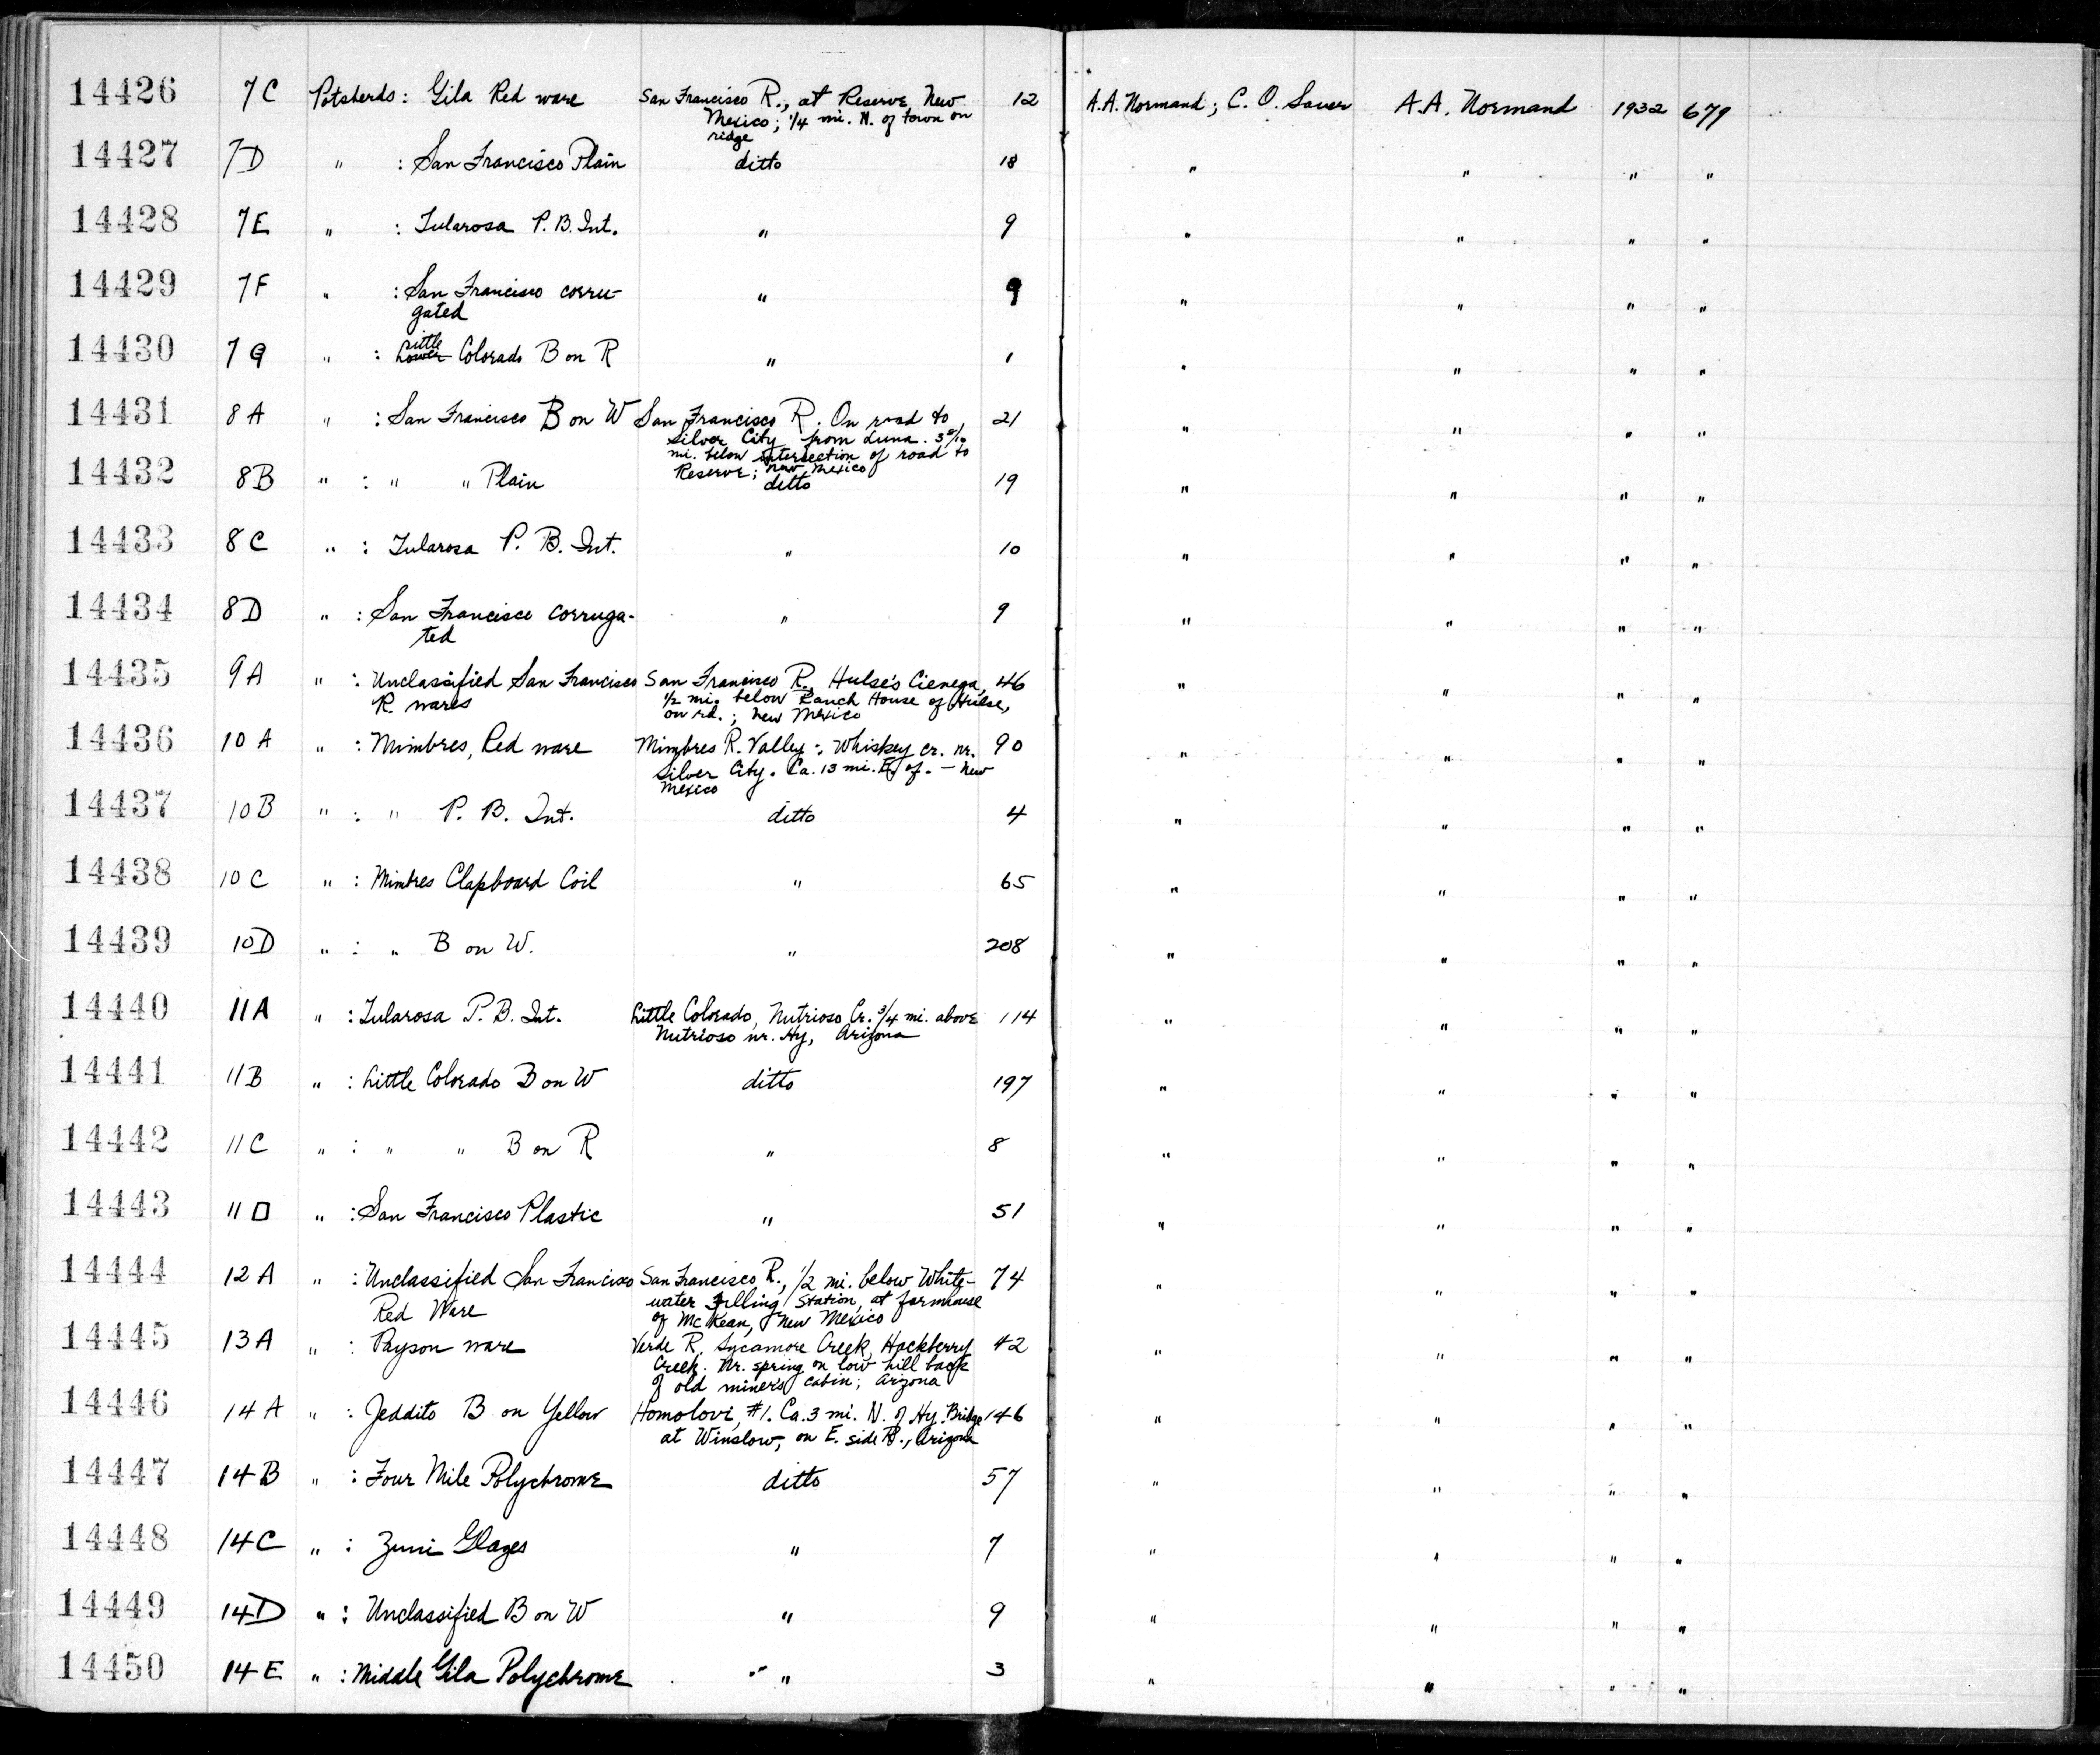 14426 7C Potsherds: Gila Red ware San Francisco R., at Reserve, New 12 A.A. Normand; C. O. Sauer A.A. Normand 1932 679
Mexico; 1/4 mi. N. of town on
ridge
14427 7D " : San Francisco Plain ditto 18 " " " "
14428 7E " : Tularosa P. B. Int. " 9 " " " "
14429 7F " : San Francisco corru- " 9 " " " "
gated
14430 7G " : Little Lower Colorado B on R " 1 " " " "
14431 8A " : San Francisco B on W San Francisco R. On road to 21 " " " "
Silver City from Luna. 3 8/10
mi. below intersection of road to
Reserve; New Mexico
14432 8B " : " " Plain ditto 19 " " " "
14433 8C " : Tularosa P. B. Int. " 10 " " " "
14434 8D " : San Francisco corruga- " 9 " " " "
ted
14435 9A " : Unclassified San Francisco San Francisco R., Hulse's Cienega, 46 " " " "
R. wares 1/2 mi. below Ranch House of Hulse,
on rd.; New Mexico
14436 10A " : Mimbres, Red ware Mimbres R. Valley: Whiskey cr. nr. 90 " " " "
Silver City. Ca. 13 mi. E. of. – New
Mexico
14437 10B " : " P. B. Int. ditto 4 " " " "
14438 10C " : Mimbres Clapboard Coil " 65 " " " "
14439 10D " : " B on W. " 208 " " " "
14440 11A " : Tularosa P. B. Int. Little Colorado, Nutrioso Cr. 3/4 mi. above 114 " " " "
Nutrioso nr. Hy, Arizona
14441 11B " : Little Colorado B on W ditto 197 " " " "
14442 11C " : " " B on R " 8 " " " "
14443 11D " : San Francisco Plastic " 51 " " " "
14444 12A " : Unclassified San Francisco San Francisco R., 1/2 mi. below White- 74 " " " "
Red Ware water Filling Station, at farmhouse
of McKean, New Mexico
14445 13A " : Payson ware Verde R. Sycamore Creek, Hackberry 42 " " " "
Creek. Nr. spring on low hill back
of old miner's cabin; Arizona
14446 14A " : Jeddito B on Yellow Homolovi, #1. Ca. 3 mi. N. of Hy. Bridge 146 " " " "
at Winslow, on E. side R., Arizona
14447 14B " : Four Mile Polychrome ditto 57 " " " "
14448 14C " : Zuni Glazes " 7 " " " "
14449 14D " : Unclassified B on W " 9 " " " "
14450 14E " : Middle Gila Polychrome " 3 " " " "